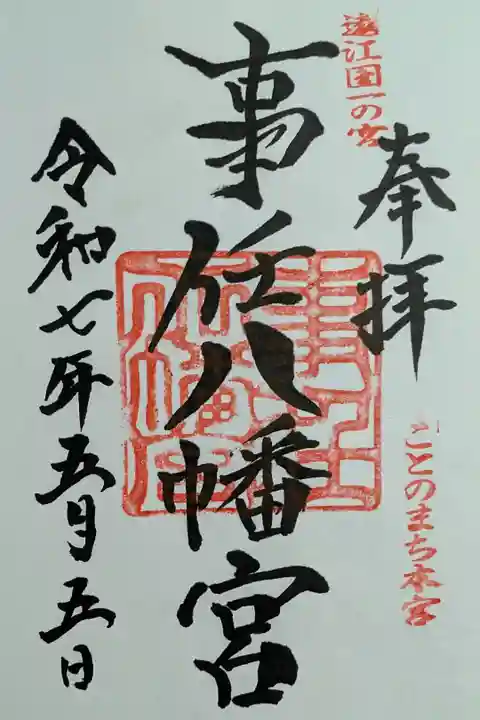 奉拝
遠江国一の宮
ことのまち本宮
事任八幡宮
令和七年五月五日